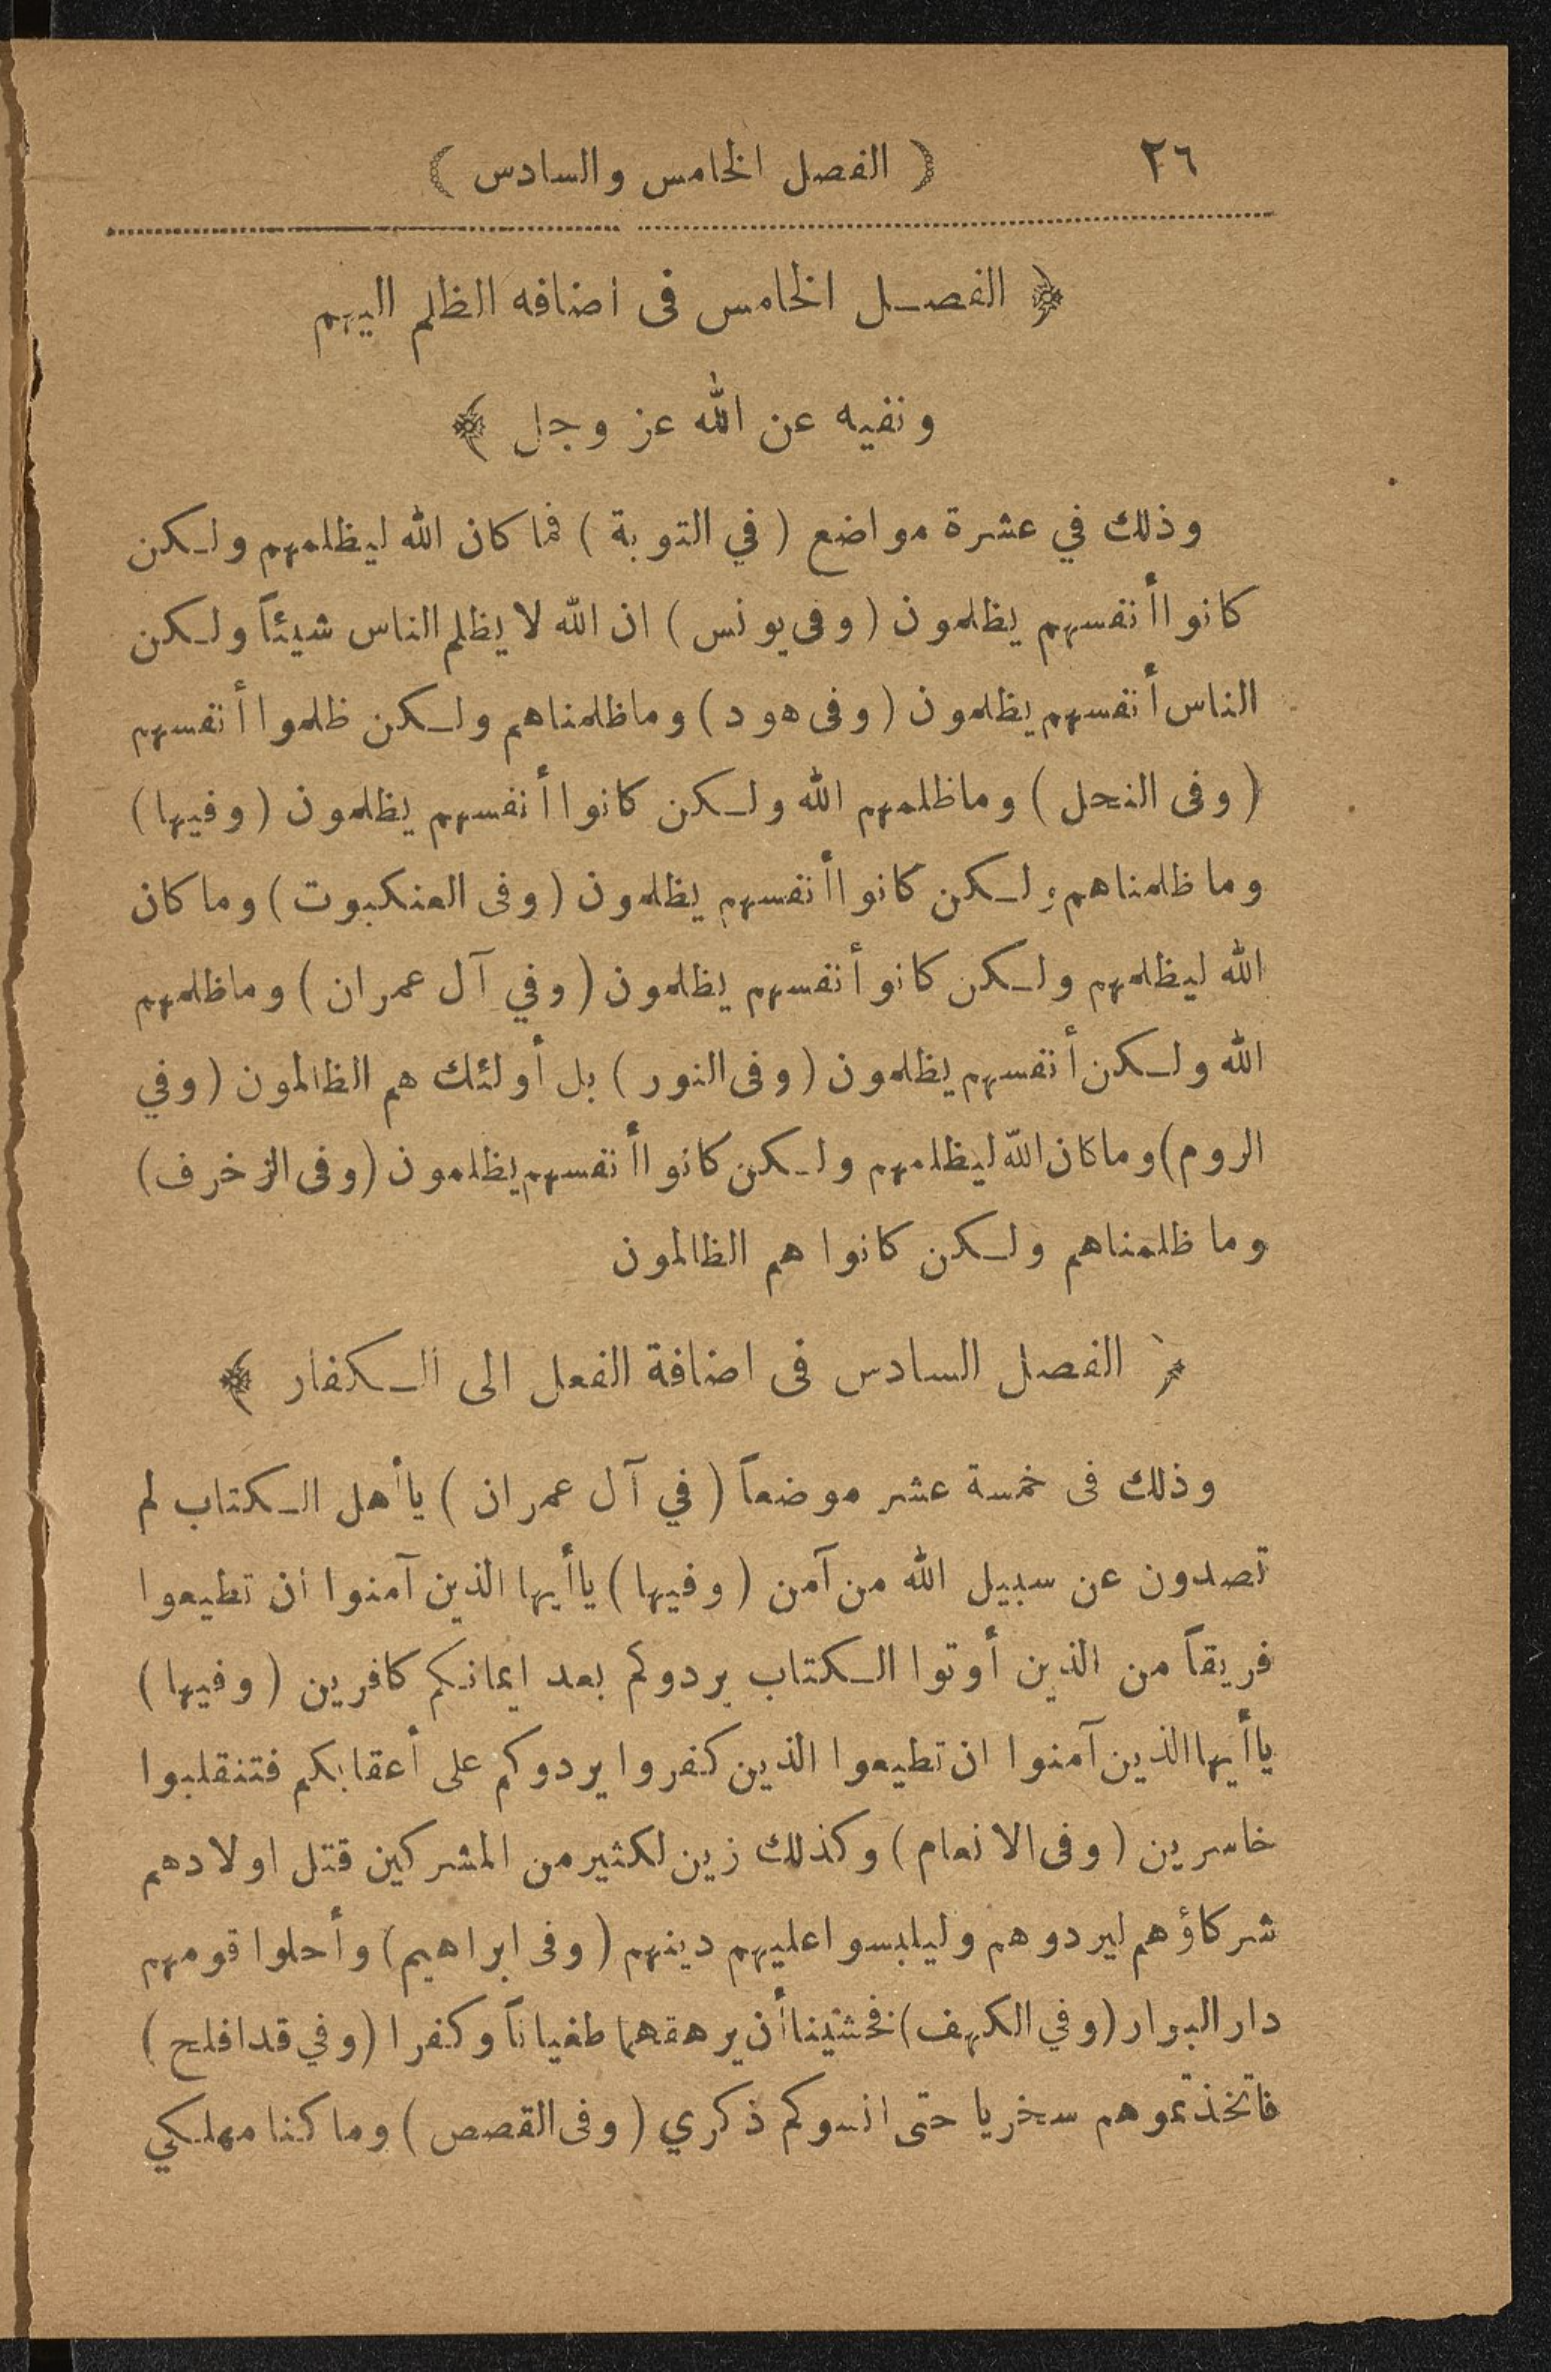 ٢٦
( الفصل الخامس والسادس )
﴿ الفصل الخامس فى اضافه الظلم اليهم
ونفيه عن الله عز وجل ﴾
وذلك في عشرة مواضع ( في التوبة ) فما كان الله ليظلمهم ولكن
كانوا أنفسهم يظلمون ( وفى يونس ) ان الله لا يظلم الناس شيئاً ولكن
الناس أنفسهم يظلمون ( وفى هود ) وماظلمناهم ولكن ظلموا أنفسهم
( وفى النحل ) وماظلمهم الله ولكن كانوا أنفسهم يظلمون ( وفيها )
وما ظلمناهم ولكن كانوا أنفسهم يظلمون ( وفى العنكبوت ) وما كان
الله ليظلمهم ولكن كانو أنفسهم يظلمون ( وفي آل عمران ) وماظلمهم
الله ولكن أنفسهم يظلمون ( وفى النور ) بل أولئك هم الظالمون ( وفي
الروم ) وما كان الله ليظلمهم ولكن كانوا أنفسهم يظلمون ( وفى الزخرف )
وما ظلمناهم ولكن كانوا هم الظالمون
﴿ الفصل السادس فى اضافة الفعل الى الكفار ﴾
وذلك فى خمسة عشر موضعاً ( في آل عمران ) يا أهل الكتاب لم
تصدون عن سبيل الله من آمن ( وفيها ) يا أيها الذين آمنوا ان تطيعوا
فريقاً من الذين أوتوا الكتاب يردوكم بعد ايمانكم كافرين ( وفيها )
يا أيها الذين آمنوا ان تطيعوا الذين كفروا يردوكم على أعقابكم فتنقلبوا
خاسرين ( وفى الانعام ) وكذلك زين لكثير من المشركين قتل اولادهم
شركاؤهم ليردوهم وليلبسوا عليهم دينهم ( وفى ابراهيم ) وأحلوا قومهم
دار البوار ( وفي الكهف ) فخشينا أن يرهقهما طغياناً وكفرا ( وفي قد افلح )
فاتخذتموهم سخريا حتى انسوكم ذكري ( وفى القصص ) وما كنا مهلكي